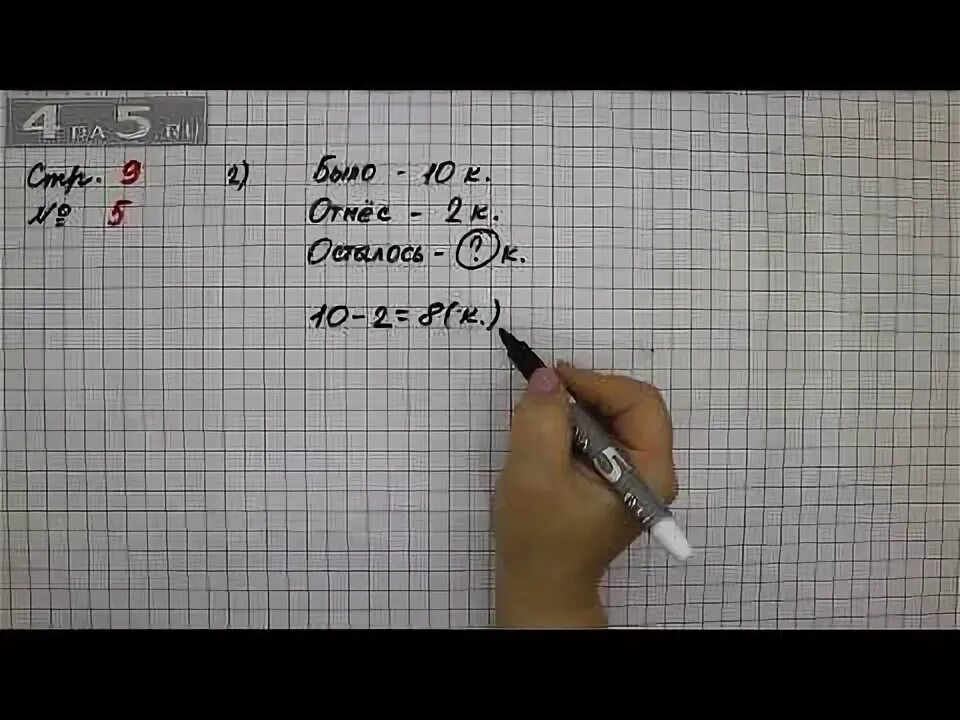 Стр. 9
№ 5
2)
Было - 10 к.
Отнёс - 2 к.
Осталось - ? к.
10 - 2 = 8 (к.)
5